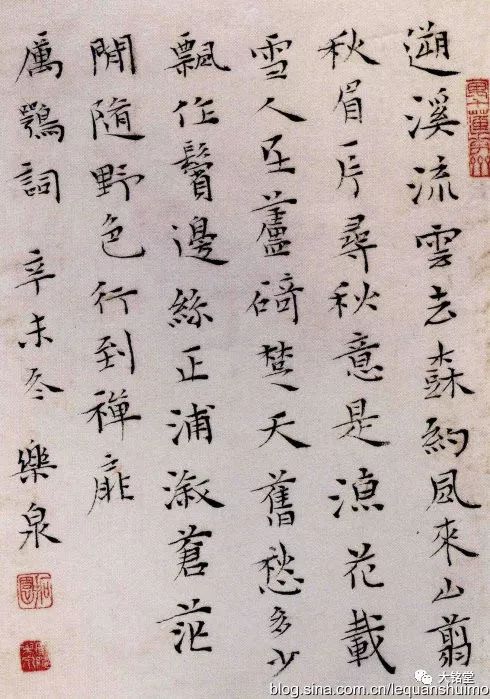 遡溪流雲去樹約風來山翦
秋眉一片尋秋意是涼花載
雪人在蘆碕楚天舊愁多少
飄作鬢邊絲正浦漵蒼茫
閒隨野色行到禪扉
厲鶚詞 辛未冬 樂泉
大铭堂
blog.sina.com.cn/lequanshuimo